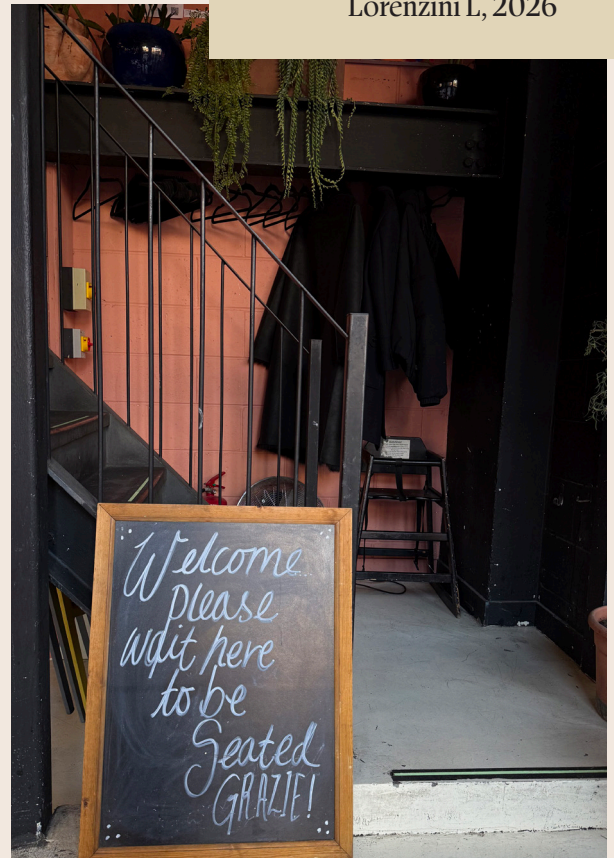 Lorenzini L, 2026
Welcome
please
wait here
to be
Seated
GRAZIE!